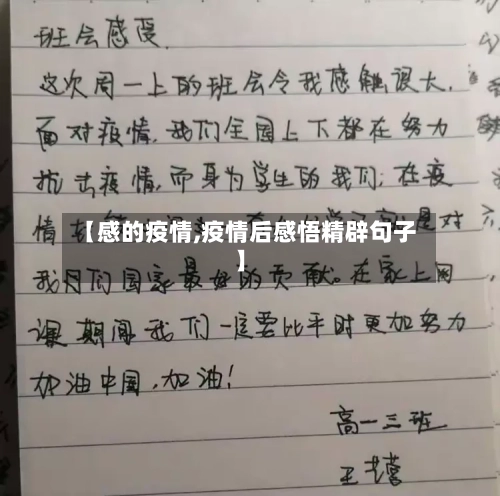 班会感受.
这次周一上的班会令我感触很大.
面对疫情.我们全国上下都在努力
抗击疫情,而身为学生的我们;在疫
【感的疫情,疫情后感悟精辟句子
】
情
是对
我们国家最好的贡献。在家上网
课期间我们一定要比平时更加努力
加油中国,加油!
高一三班